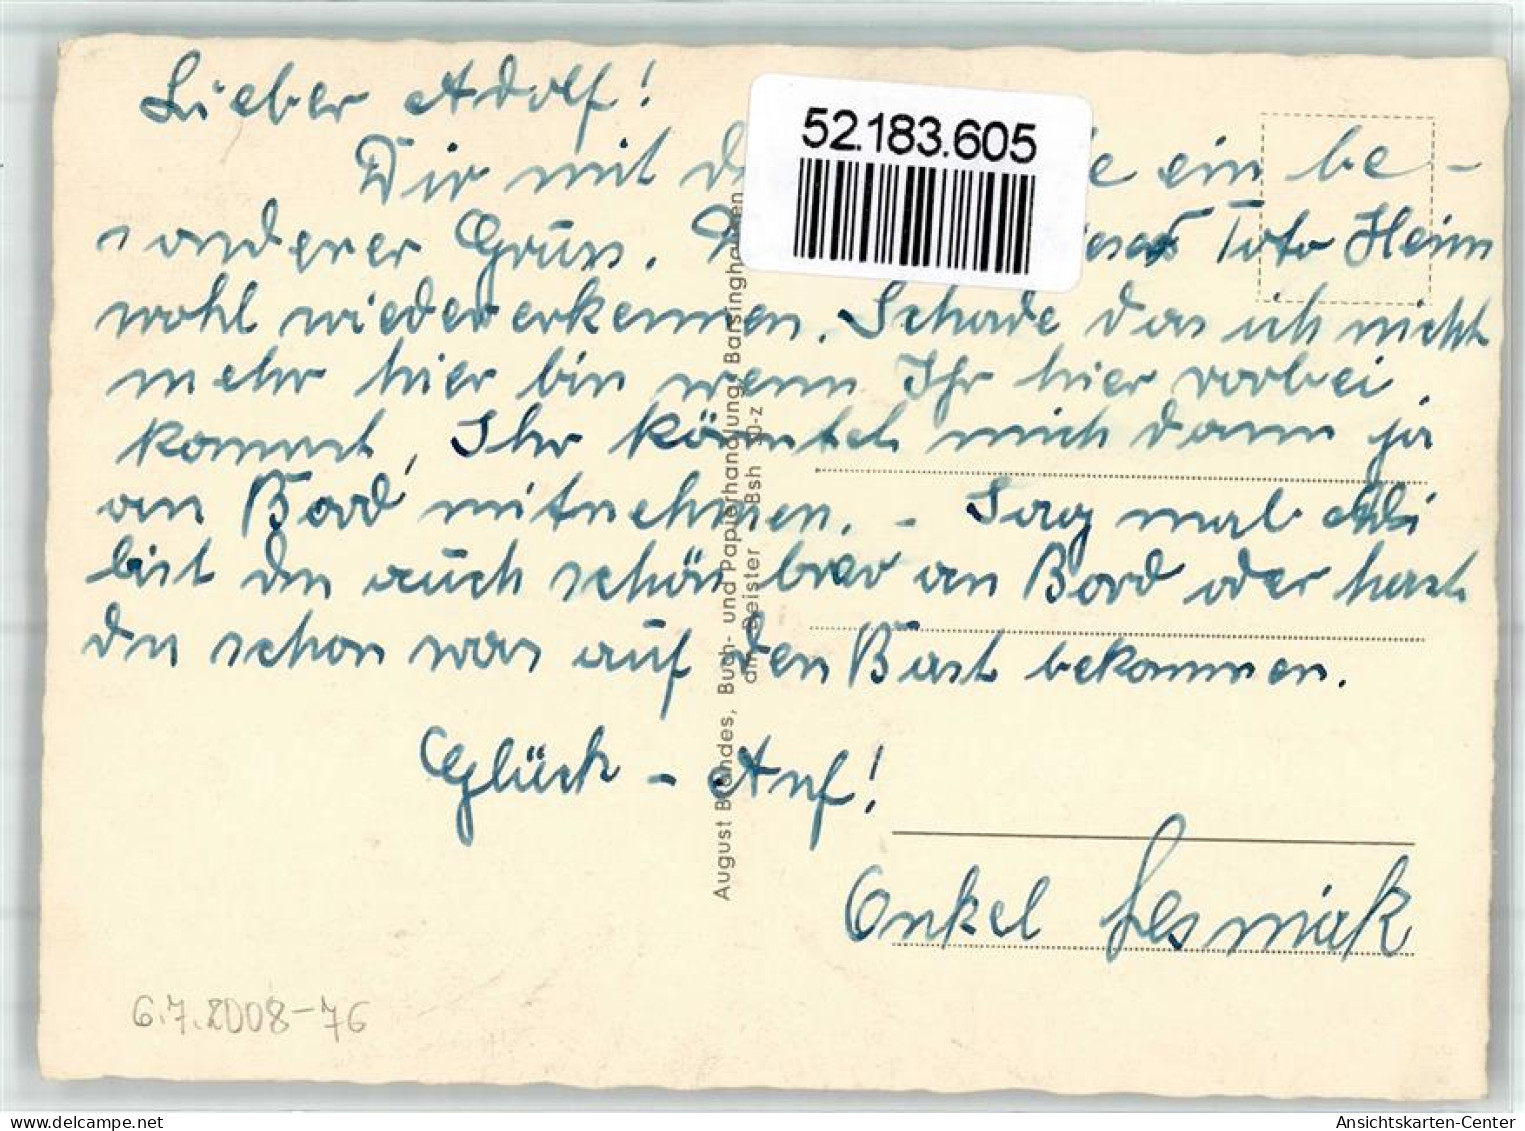 Lieber Adolf!
Dir mit ein be-
sonderer Grus. Toto Heim
wohl wiedererkennen. Schade das ich nicht
mehr hier bin wenn Ihr hier vorbei
kommt, Ihr könntet mich dann ja
an Bord mitnehmen. - Sag mal
bist du auch schön brav an Bord oder hast
du schon was auf den Bast bekommen.
Glück - Auf!
Onkel Lesniak
6.7.2008-76
52.183.605
August Brandes, Buch- und Papierhandlung, Barsinghausen
am Deister Bsh 10-z
Ansichtskarten-Center